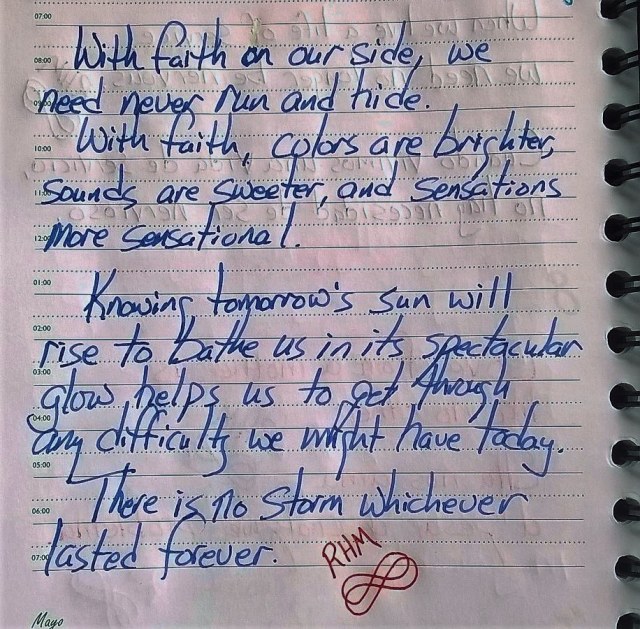 07:00
With faith on our side, we
08:00
need never run and hide.
09:00
With faith, colors are brighter,
10:00
sounds are sweeter, and sensations
11:00
more sensational.
12:00
Knowing tomorrow's sun will
01:00
rise to bathe us in its spectacular
02:00
glow, helps us to get through
03:00
any difficulty we might have today.
04:00
05:00
There is no storm whichever
06:00
lasted forever.
07:00
RHM
Mayo